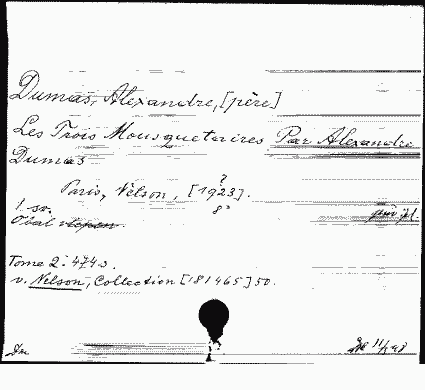 Dumas, Alexandre, [père]
Les Trois Mousquetaires Par Alexandre
Dumas
Paris, Nelson, [1923].
?
8°
1 sv.
Obál
Tome 2: 474 s.
v. Nelson, Collection [181465] 50.